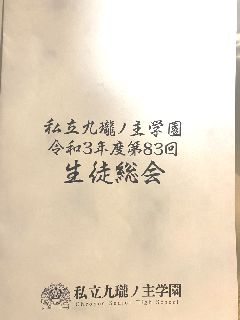 私立九瓏ノ主学園
令和3年度第83回
生徒総会
私立九瓏ノ主学園
High School